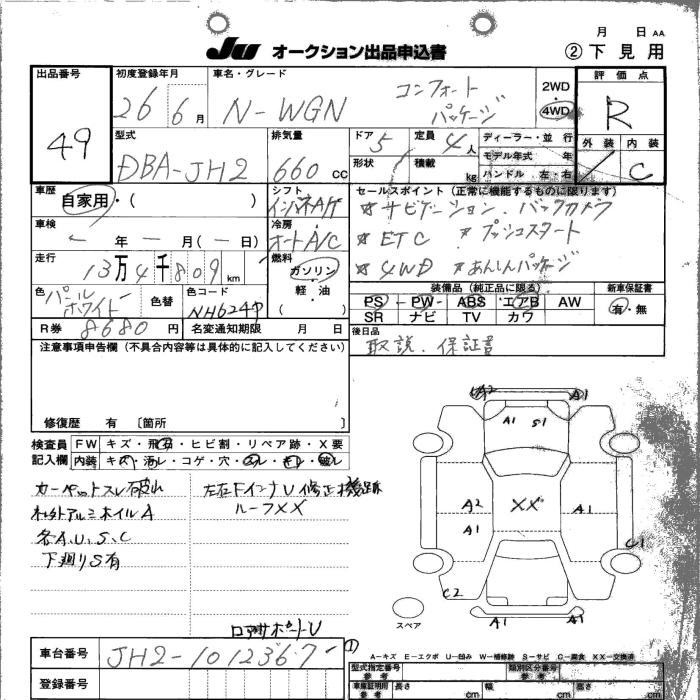 月 日 AA
JU オークション出品申込書
② 下見用
出品番号
49
初度登録年月
26 6月
車名・グレード
N-WGN コンフォート
パッケージ
2WD
・
4WD
評価点
R
外装 内装
／ C
型式
DBA-JH2
排気量
660 CC
ドア 5
定員 4人
形状
積載 kg
ディーラー・並行
モデル年式 年
ハンドル 左・右
車歴
自家用・( )
シフト
インパネA/T
セールスポイント (正常に機能するものに限ります)
☆ナビゲーション．バックカメラ
☆ETC ☆プッシュスタート
☆4WD ☆あんしんパッケージ
車検
- 年 - 月 ( - 日)
冷房
オートA/C
走行
13万4千809km
燃料
ガソリン・
軽・油
( )
色
パール
ホワイト
色替
色コード
NH624P
装備品 (純正品に限る)
PS PW ABS エアB AW
SR ナビ TV カワ
新車保証書
有・無
R券 8680円
名変通知期限 月 日
後日品
取説．保証書
注意事項申告欄 (不具合内容等は具体的に記入してください)
修復歴 有 〔箇所 〕
検査員
記入欄
FW キズ・飛石・ヒビ割・リペア跡・X要
内装 キズ・汚レ・コゲ・穴・スレ・キレ・破レ
カーペットスレ破れ
社外アルミホイルA
各A.U.S.C
下廻りS有
ルーフXX
ロアサポートU
A2 A1
A1 S1
A2 XX A1
A1
C1
C2
A1 A1
スペア
A－キズ E－エクボ U－凹み W－補修跡 S－サビ C－腐食 XX－交換済
車台番号
JH2-1012367
登録番号
型式指定番号
参考
類別区分番号
参考
車庫証明用
参考
長さ cm
幅 cm
高さ cm